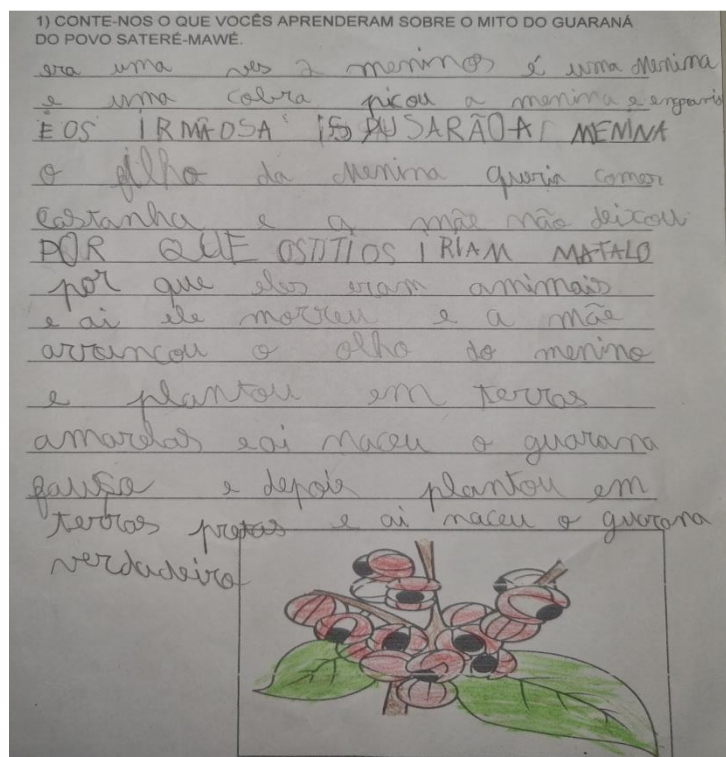 1) CONTE-NOS O QUE VOCÊS APRENDERAM SOBRE O MITO DO GUARANÁ
DO POVO SATERÉ-MAWÉ.
era uma ves 2 meninos é uma menina
e uma cobra picou a menina e
E OS IRMÃOSA MENINA
o filho da menina queria comer
castanha e a mãe não deixou
POR QUE OSTITIOS IRIAM MATALO
por que eles eram animais
e ai ele morreu e a mãe
arrancou o olho do menino
e plantou em terras
amarelas eai naceu o guarana
e depois plantou em
terras pretas e ai naceu o guarana
verdadeiro